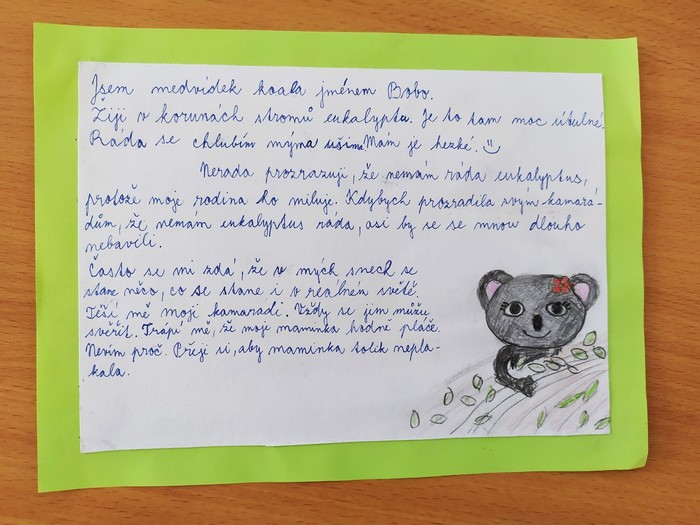 Jsem medvídek koala jménem Bobo.
Žiji v korunách stromů eukalyptu. Je to tam moc útulné.
Ráda se chlubím mýma ušima. Mám je hezké. :)
Nerada prozrazuji, že nemám ráda eukalyptus,
protože moje rodina ho miluje. Kdybych prozradila svým kamará-
dům, že nemám eukalyptus ráda, asi by se se mnou dlouho
nebavili.
Často se mi zdá, že v mých snech se
stane něco, co se stane i v reálném světě.
Těší mě moji kamarádi. Vždy se jim můžu
svěřit. Trápí mě, že moje maminka hodně pláče.
Nevím proč. Přeji si, aby maminka tolik nepla-
kala.